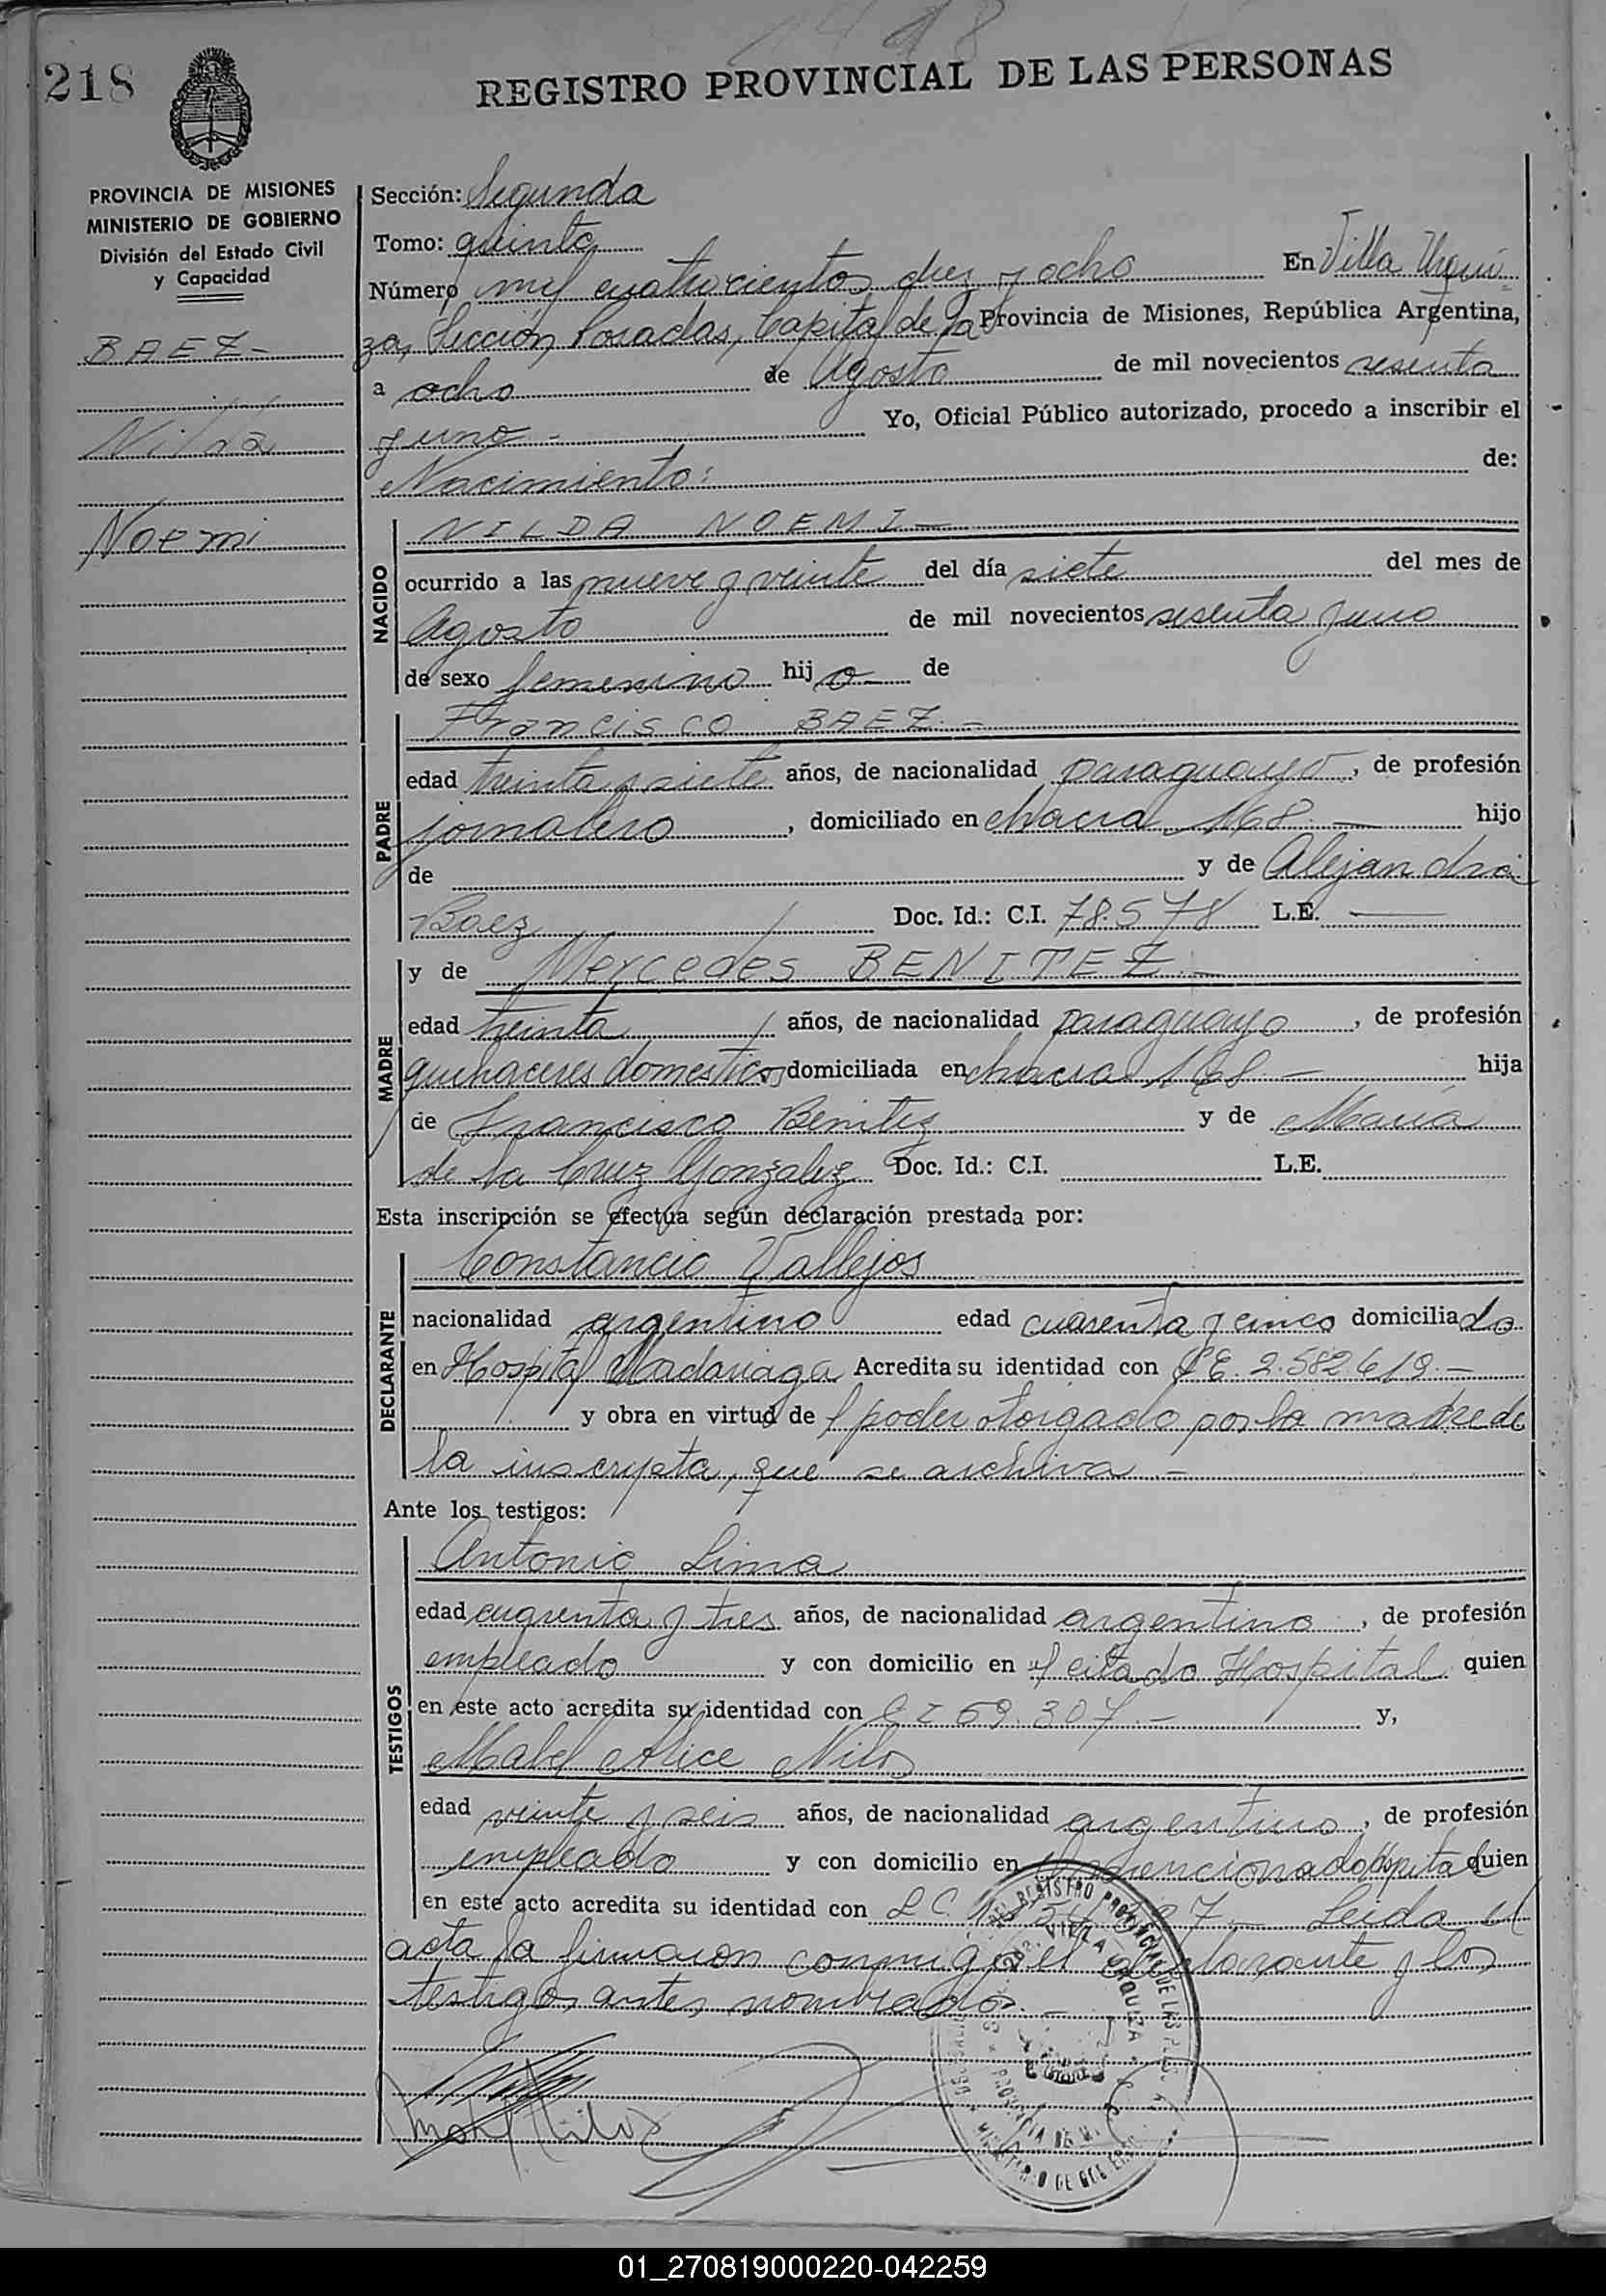 218
REGISTRO PROVINCIAL DE LAS PERSONAS
PROVINCIA DE MISIONES
MINISTERIO DE GOBIERNO
División del Estado Civil
y Capacidad
BAEZ -
Nilda
Noemi
Sección: Segunda
Tomo: quinto
Número mil cuatrocientos diez y ocho En Villa Urqui-
za, Sección Posadas, Capital de la Provincia de Misiones, República Argentina,
a ocho de Agosto de mil novecientos sesenta
y uno - Yo, Oficial Público autorizado, procedo a inscribir el
Nacimiento: de:
NACIDO
NILDA NOEMI -
ocurrido a las nueve y veinte del día siete del mes de
Agosto de mil novecientos sesenta y uno
de sexo femenino hija de
PADRE
Francisco BAEZ. -
edad treinta y siete años, de nacionalidad paraguayo, de profesión
jornalero, domiciliado en chacra 168. - hijo
de y de Alejandra
Baez Doc. Id.: C.I. 78.578 L.E. -
MADRE
y de Mercedes BENITEZ. -
edad treinta años, de nacionalidad paraguayo, de profesión
quehaceres domesticos domiciliada en chacra 168. - hija
de Francisco Benitez y de Maria
de la Cruz Gonzalez Doc. Id.: C.I. L.E.
Esta inscripción se efectua según declaración prestada por:
DECLARANTE
Constancio Vallejos
nacionalidad argentino edad cuarenta y cinco domiciliado
en Hospital Madariaga Acredita su identidad con L E. 2.582.619. -
y obra en virtud de poder otorgado por la madre de
la inscrypta, que se archiva. -
Ante los testigos:
TESTIGOS
Antonio Lima
edad cuarenta y tres años, de nacionalidad argentino, de profesión
empleado y con domicilio en el citado Hospital quien
en este acto acredita su identidad con C I 69.307. - y,
Mabel Alice Nilos
edad veinte y seis años, de nacionalidad argentino, de profesión
empleado y con domicilio en mencionado Hospital quien
en este acto acredita su identidad con L C. Leida el
acta la firmaron conmigo el declarante y los
testigos antes nombrados. -
REGISTRO PROVINCIAL DE LAS
VILLA URQUIZA
PROVINCIA DE M.
MINISTERIO DE GOBIERNO
01_270819000220-042259